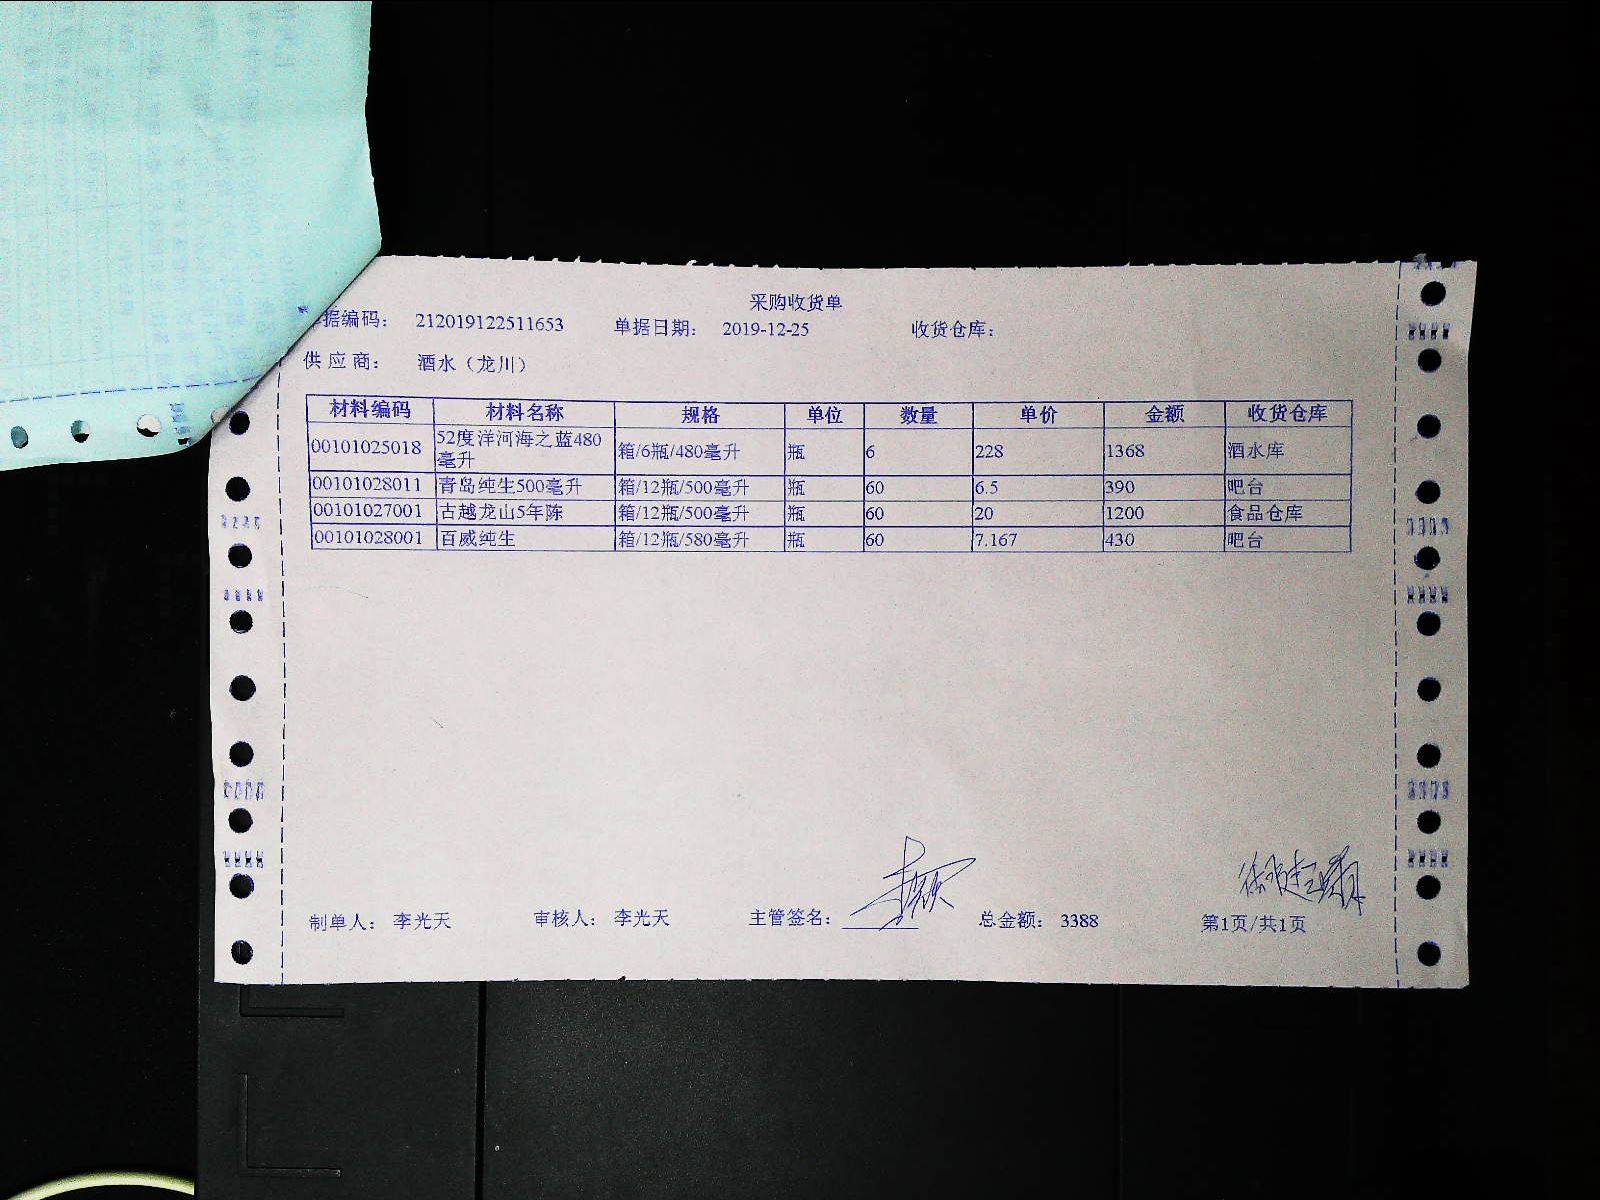 采购收货单
据编码： 212019122511653 单据日期： 2019-12-25 收货仓库：
供应商： 酒水（龙川）
材料编码 材料名称 规格 单位 数量 单价 金额 收货仓库
00101025018 52度洋河海之蓝480毫升 箱/6瓶/480毫升 瓶 6 228 1368 酒水库
00101028011 青岛纯生500毫升 箱/12瓶/500毫升 瓶 60 6.5 390 吧台
00101027001 古越龙山5年陈 箱/12瓶/500毫升 瓶 60 20 1200 食品仓库
00101028001 百威纯生 箱/12瓶/580毫升 瓶 60 7.167 430 吧台
制单人： 李光天 审核人： 李光天 主管签名： 总金额： 3388 第1页/共1页